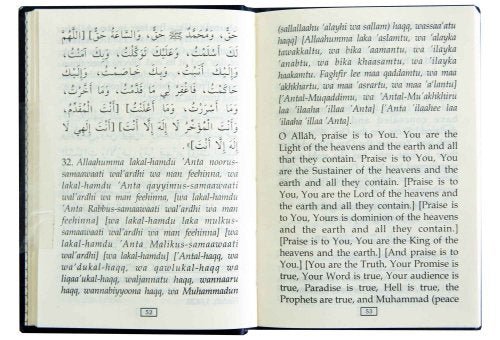 حَقٌّ، وَمُحَمَّدٌ ﷺ حَقٌّ، وَالسَّاعَةُ حَقٌّ] [اللَّهُمَّ
لَكَ أَسْلَمْتُ، وَعَلَيْكَ تَوَكَّلْتُ، وَبِكَ آمَنْتُ،
وَإِلَيْكَ أَنَبْتُ، وَبِكَ خَاصَمْتُ، وَإِلَيْكَ
حَاكَمْتُ، فَاغْفِرْ لِي مَا قَدَّمْتُ، وَمَا أَخَّرْتُ،
وَمَا أَسْرَرْتُ، وَمَا أَعْلَنْتُ] [أَنْتَ الْمُقَدِّمُ،
وَأَنْتَ الْمُؤَخِّرُ لَا إِلَهَ إِلَّا أَنْتَ] [أَنْتَ إِلَهِي لَا
إِلَهَ إِلَّا أَنْتَ].
32. Allaahumma lakal-hamdu 'Anta noorus-
samaawaati wal'ardhi wa man feehinna, wa
lakal-hamdu 'Anta qayyimus-samaawaati
wal'ardhi wa man feehinna, [wa lakal-hamdu
'Anta Rabbus-samaawaati wal'ardhi wa man
feehinna] [wa lakal-hamdu laka mulkus-
samaawaati wal'ardhi wa man feehinna] [wa
lakal-hamdu 'Anta Malikus-samaawaati
wal'ardhi] [wa lakal-hamdu] ['Antal-haqq, wa
wa'dukal-haqq, wa qawlukal-haqq, wa
liqaa'ukal-haqq, waljannatu haqq, wannaaru
haqq, wannabiyyoona haqq, wa Muhammadun
52
(sallallaahu 'alayhi wa sallam) haqq, wassaa'atu
haqq] [Allaahumma laka 'aslamtu, wa 'alayka
tawakkaltu, wa bika 'aamantu, wa 'ilayka
'anabtu, wa bika khaasamtu, wa 'ilayka
haakamtu. Faghfir lee maa qaddamtu, wa maa
'akhkhartu, wa maa 'asrartu, wa maa 'a'lantu]
['Antal-Muqaddimu, wa 'Antal-Mu'akhkhiru
laa 'ilaaha 'illaa 'Anta] ['Anta 'ilaahee laa
'ilaaha 'illaa 'Anta].
O Allâh, praise is to You. You are the
Light of the heavens and the earth and all
that they contain. Praise is to You, You
are the Sustainer of the heavens and the
earth and all they contain. [Praise is to
You, You are the Lord of the heavens and
the earth and all they contain.] [Praise is
to You, Yours is dominion of the heavens
and the earth and all they contain.]
[Praise is to You, You are the King of the
heavens and the earth.] [And praise is to
You.] [You are the Truth, Your Promise is
true, Your Word is true, Your audience is
true, Paradise is true, Hell is true, the
Prophets are true, and Muhammad (peace
53